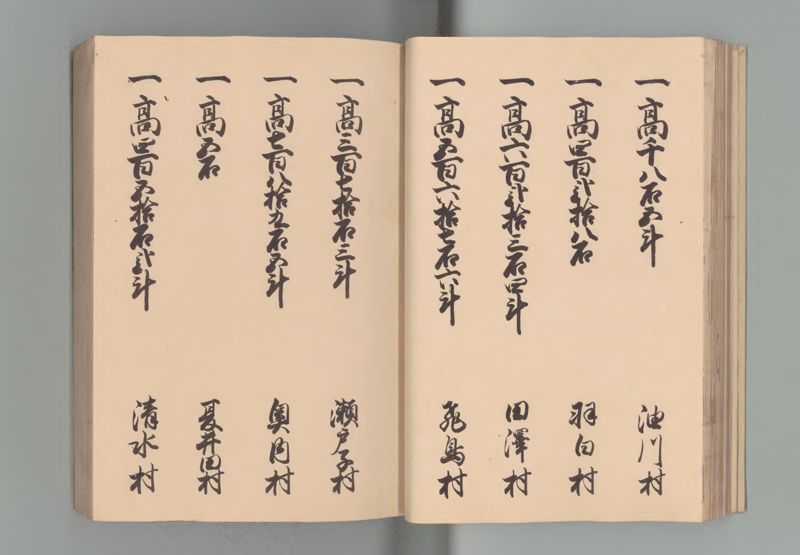 一高千八石五斗 油川村
一高四百弐拾八石 羽白村
一高六百弐拾三石四斗 田澤村
一高五百六拾七石六斗 飛鳥村
一高三百七拾石三斗 瀬戸子村
一高七百八拾九石五斗 奥内村
一高五石 夏井田村
一高四百五拾石弐斗 清水村